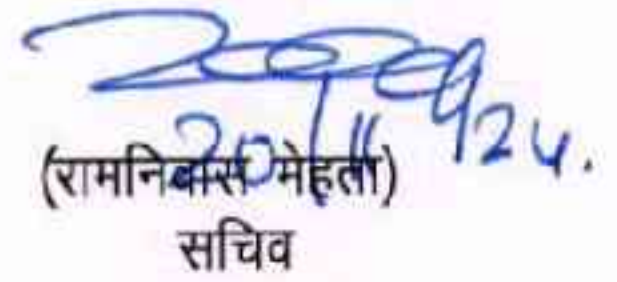 20/11/24.
(रामनिवास मेहता)
सचिव